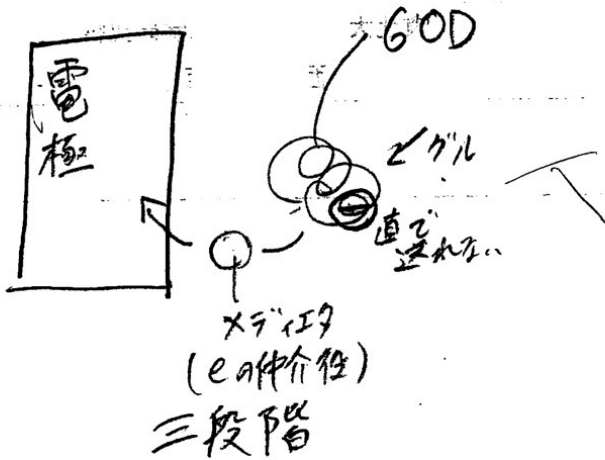 GOD
電極
グル
直で
送れない
メディエタ
(eの仲介役)
三段階